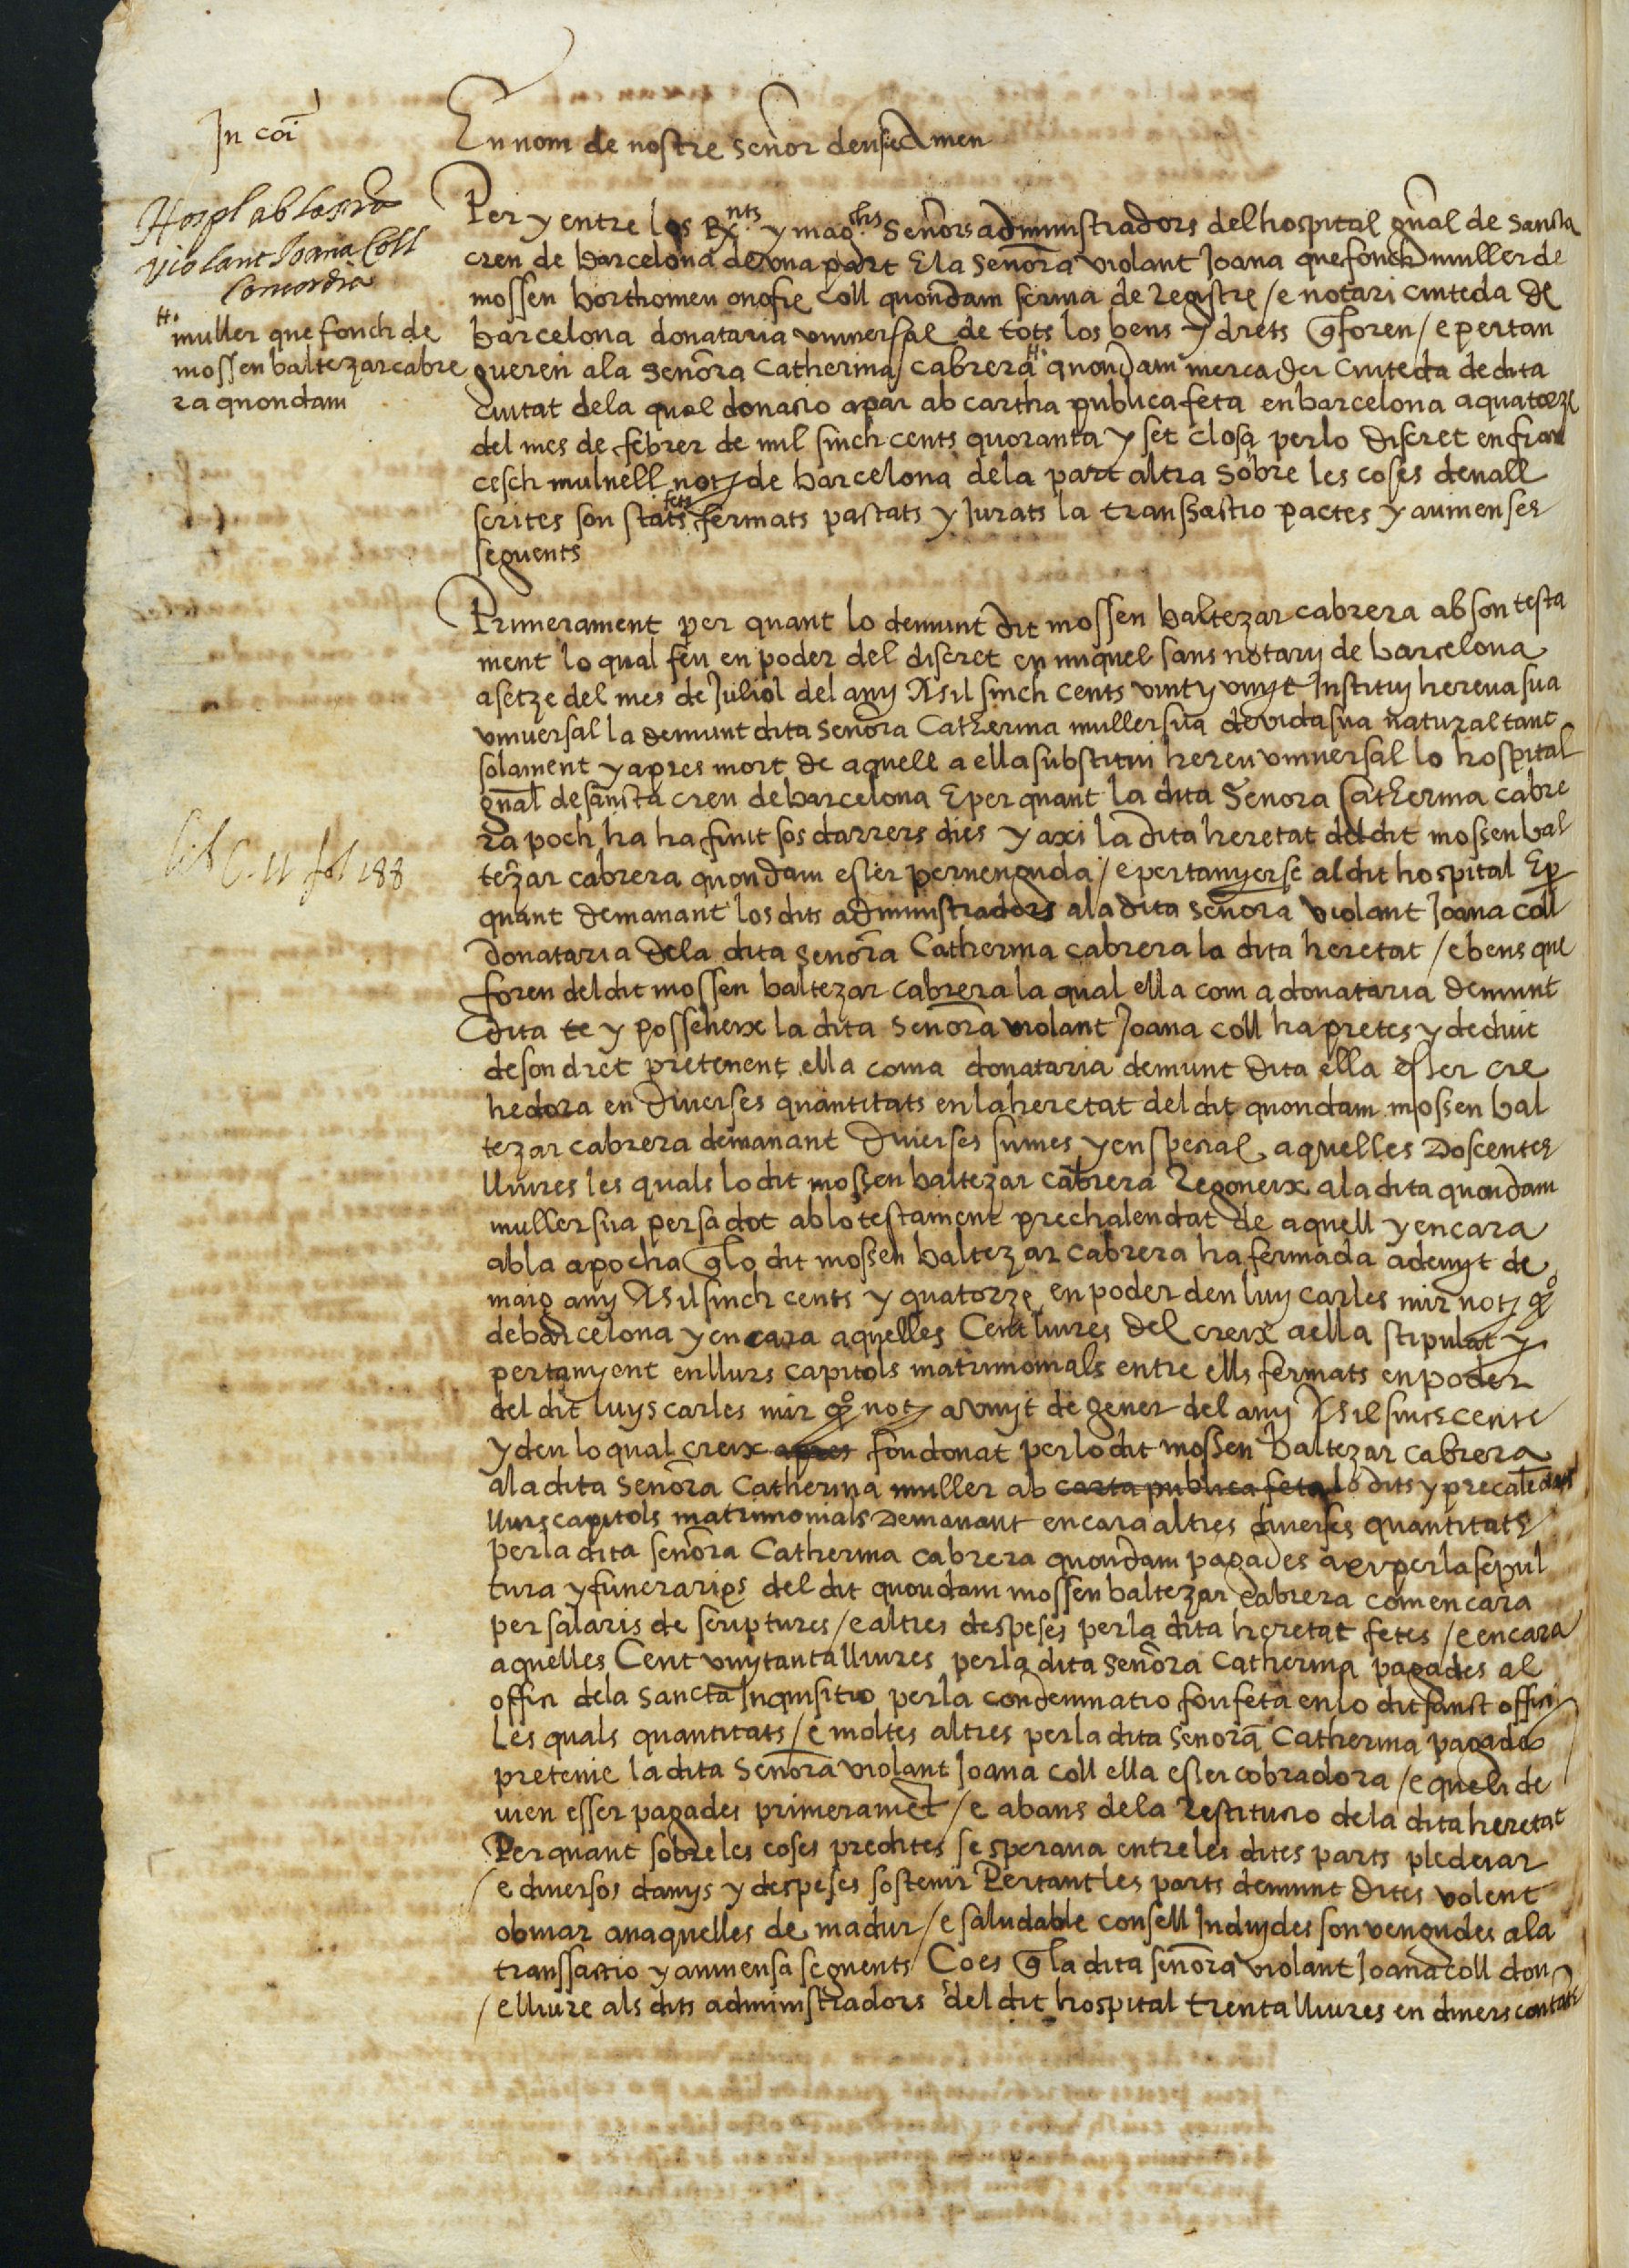 In coi
Hospl ab la sra
violant Joana Coll
Concordia
muller que fonch de
mossen baltezar cabre
ra quondam
lib C. 11 fol 188
En nom de nostre senor deu sie Amen
Per y entre los Rx.nts y mag.chs senors administradors del hospital gnal de Sancta
creu de barcelona de vna part E la senora violant Joana que fonch muller de
mossen borthomeu onofre coll quondam scriua de registre / e notari ciuteda de
barcelona donataria vniuersal de tots los bens y drets q foren / e pertan
gueren a la senora Catherina cabrera quondam mercader ciuteda de dita
ciutat de la qual donacio apar ab cartha publica feta en barcelona a quatorze
del mes de febrer de mil sinch cents quoranta y set closa per lo discret en fran
cesch mulnell not de barcelona de la part altra sobre les coses deuall
scrites son stats fets fermats pactats y Jurats la transsactio pactes y auinenses
seguents
Primerament per quant lo demunt dit mossen baltezar cabrera ab son testa
ment lo qual feu en poder del discret en miquel sans notary de barcelona
a setze del mes de Juliol del any Mil sinch cents vint y vuyt Instituy hereua sua
vniuersal la demunt dita senora Catherina muller sua de vida sua natural tant
solament y apres mort de aquell a ella substitui hereu vniuersal lo hospital
gnal de sancta creu de barcelona E per quant la dita Senora Catherina cabre
ra poch ha ha finit sos darrers dies y axi la dita heretat del dit mossen bal
tezar cabrera quondam esser peruenguda / e pertanyerse al dit hospital E p
quant demanant los dits administradors a la dita senora violant Joana coll
donataria de la dita senora Catherina cabrera la dita heretat / e bens que
foren del dit mossen baltezar cabrera la qual ella com a donataria demunt
dita te y posseheix la dita senora violant Joana coll ha pretes y deduit
de son dret pretenent ella coma donataria demunt dita ella esser cre
hedora en diuerses quantitats en la heretat del dit quondam mossen bal
tezar cabrera demanant diuerses sumes y en special aquelles doscentes
lliures les quals lo dit mossen baltezar cabrera regoneix a la dita quondam
muller sua per sa dot ab lo testament prechalendat de aquell y encara
ab la apocha q lo dit mossen baltezar cabrera ha fermada a denyt de
maig any Mil sinch cents y quatorze en poder den luy carles mir not qo
de barcelona y encara aquelles Cent liures del creix a ella stipulat y
pertanyent en llurs capitols matrimonials entre ells fermats en poder
del dit luys carles mir qo not a vuyt de gener del any Mil sinc cents
y deu lo qual creix apres fou donat per lo dit mossen baltezar cabrera
a la dita senora Catherina muller ab carta publica feta lo dits y precalendats
llurs capitols matrimonials demanant encara altres diuerses quantitats
per la dita senora Catherina cabrera quondam pagades axi per la sepul
tura y funeraries del dit quondam mossen baltezar cabrera com encara
per salaris de scriptures / e altres despeses per la dita heretat fetes / e encara
aquelles Cent vuytanta lliures per la dita senora Catherina pagades al
offici de la sancta Inquisitio per la condemnatio fou feta en lo dit sanct offici
Les quals quantitats / e moltes altres per la dita senora Catherina pagades
pretenie la dita senora violant Joana coll ella esser cobradora / e que li de
uien esser pagades primeramet / e abans de la restitucio de la dita heretat
Per quant sobre les coses predites se speraua entre les dites parts pledeiar
/ e diuersos danys y despeses sostenir Pertant les parts demunt dites volent
obuiar a naquelles de madur / e saludable consell Induydes son vengudes a la
transsactio y auinensa seguents Coes q la dita senora violant Joana coll don
/ e lliure als dits administradors del dit hospital trenta lliures en diners contats